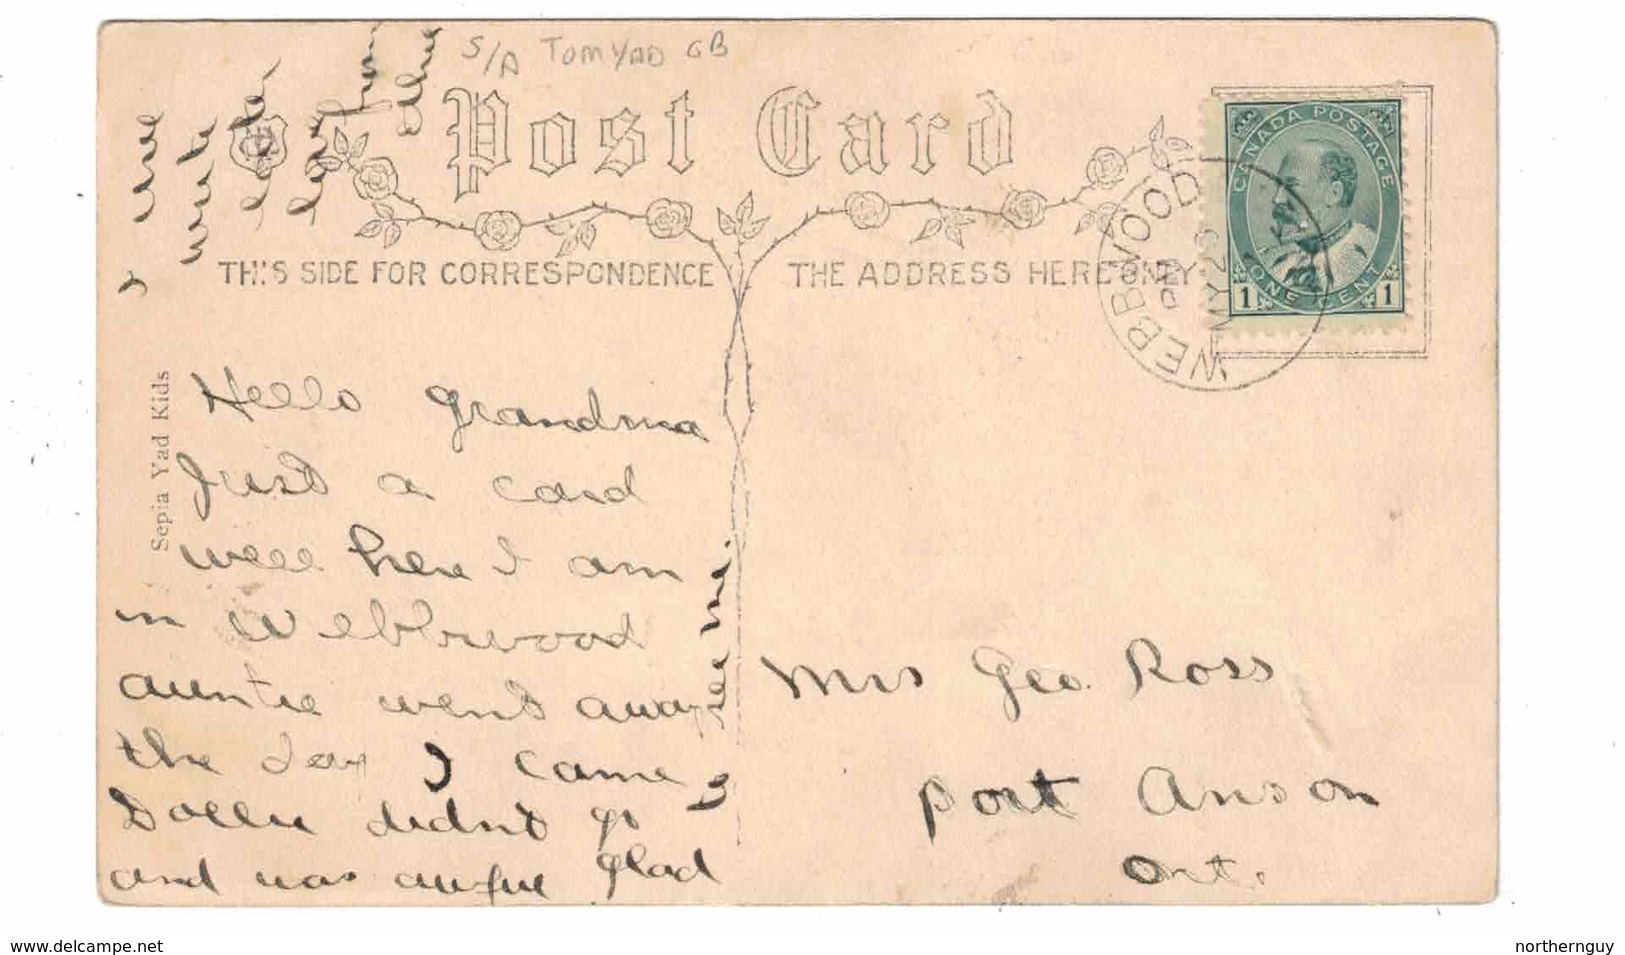 S/A TOMYAD GB
Post Card
THIS SIDE FOR CORRESPONDENCE
THE ADDRESS HERE ONLY
CANADA POSTAGE
ONE CENT
1 1
WEBBWOOD
PM
MY 25
Sepia Yad Kids
Hello Grandma
Just a card
well here I am
in Webbwood
auntie went away
the day I came
Dollie didn't go
and was awful glad
to see me.
I will
write
later
love from
Mrs Geo. Ross
Port Anson
Ont.
www.delcampe.net
northernguy